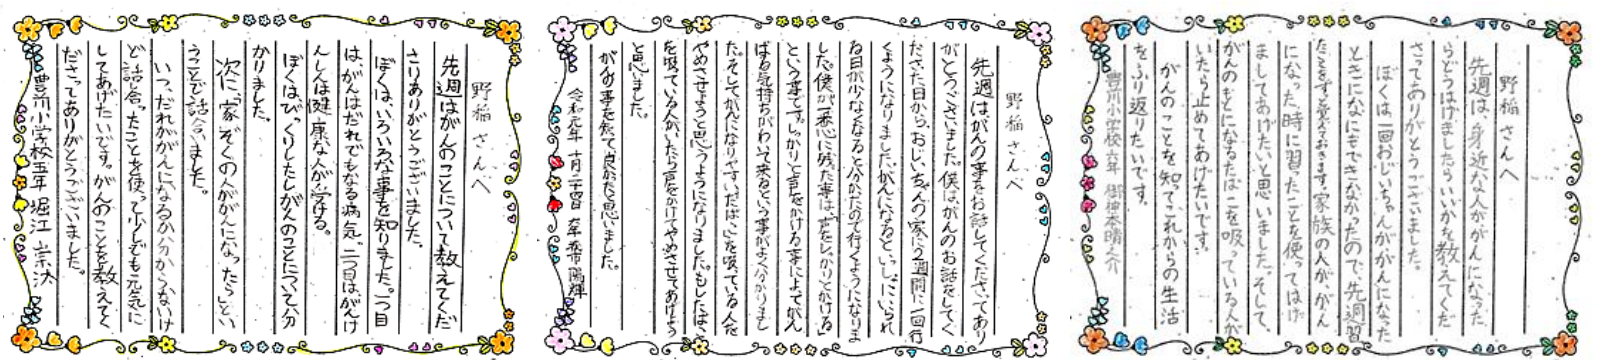 野稲さんへ
先週はがんのことについて教えてくだ
さりありがとうございました。
ぼくは、いろいろな事を知りました。一つ目
は、がんはだれでもなる病気、二つ目はがんけ
んしんは健康な人が受ける。
ぼくはびっくりしたしがんのことについて分
かりました。
次に、「家ぞくの人ががんになったら」とい
うことで話合いました。
いつ、だれががんになるか分からないけ
ど話し合ったことを使って少しでも元気に
してあげたいです。がんのことを教えてく
ださってありがとうございました。
豊川小学校五年 堀江 宗汰
野稲さんへ
先週はがんの事をお話してくださってあり
がとうございました。僕は、がんのお話をしてく
ださった日から、おじいちゃんの家に2週間に一回行
くようになりました。がんになるといっしょにいられ
る日が少なくなると分かったので行くようになりま
した。僕が一番心に残った事は、声をしっかりとかける
という事です。しっかりと声をかける事によってがん
ばる気持ちがわいて来るという事がよく分かりまし
た。そしてがんになりやすい、たばこを吸っている人を
やめさせようと思うようになりました。もしたばこ
を吸っている人がいたら声をかけてやめさせてあげよう
と思いました。
がんの事を知れて良かったと思いました。
令和元年 十月二十四日 六年 希 陽輝
野稲さんへ
先週は、身近な人ががんになった
らどうはげましたらいいかを教えてくだ
さってありがとうございました。
ぼくは、一回おじいちゃんががんになった
ときになにもできなかったので、先週習っ
たことをず覚えておきます。家族の人が、がん
になった時に習ったことを使ってはげ
ましてあげたいと思いました。そして、
がんのもとになるたばこを吸っている人が
いたら止めてあげたいです。
がんのことを知って、これからの生活
をふり返りたいです。
豊川小学校 六年 御神本晴之介